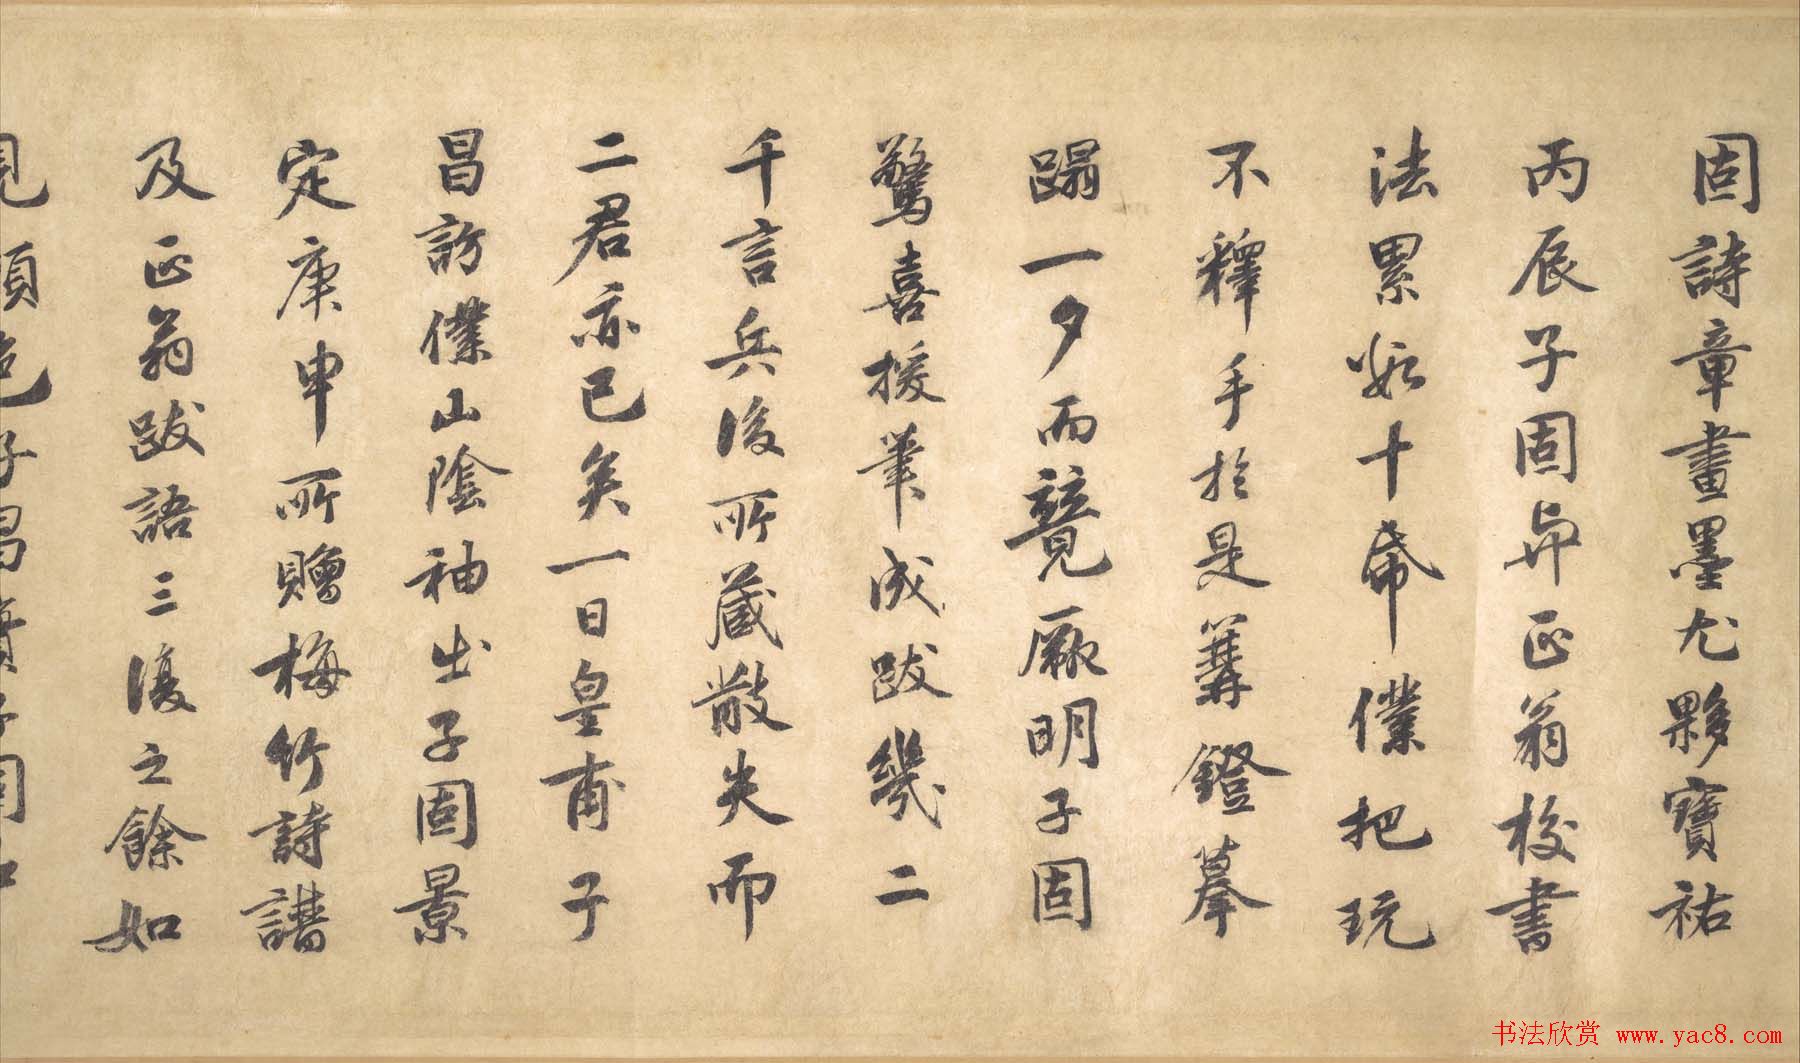 固詩章畫墨尤夥寶祐
丙辰子固與正翁校書
法累數十帋僕把玩
不釋手於是篝鐙摹
蹋一夕而竟厥明子固
驚喜援筆成跋幾二
千言兵後所藏散失而
二君亦已矣一日皇甫子
昌訪僕山陰袖出子固景
定庚申所贈梅竹詩譜
及正翁跋語三復之餘如
書法欣赏 www.yac8.com